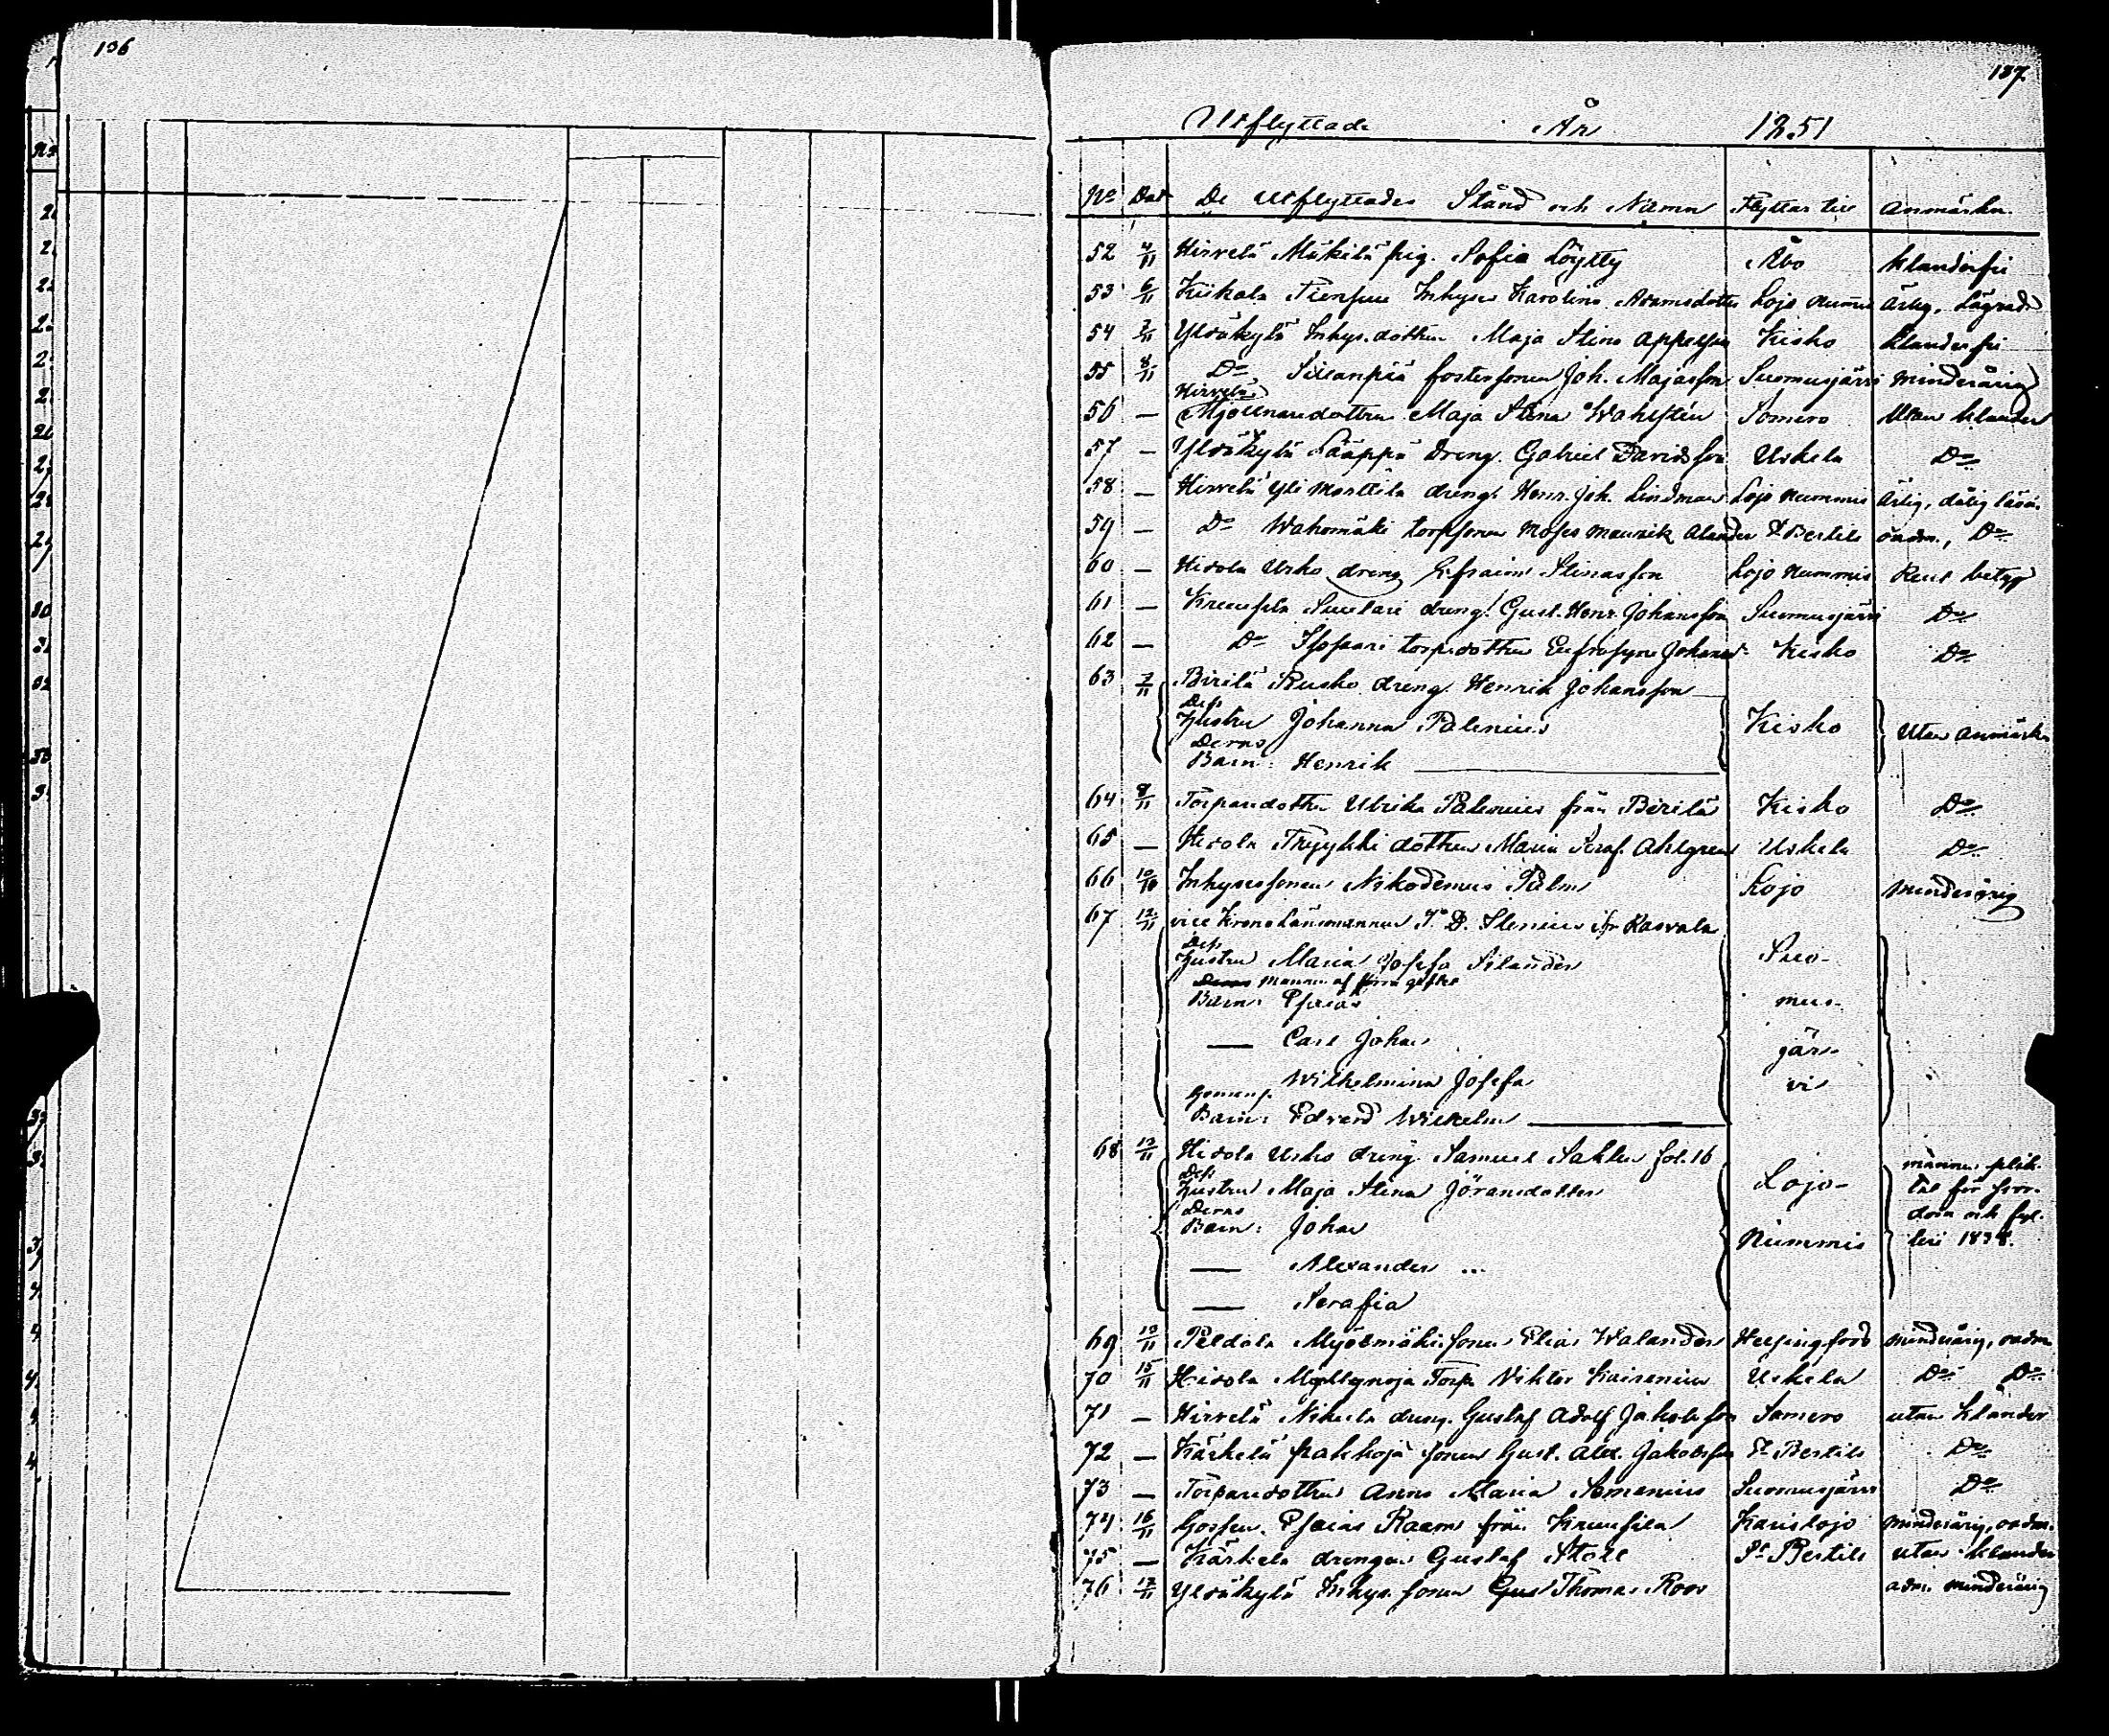 136
137.
Utflyttade År 1851
No Dat De Utflyttades Stånd och Namn Flyttar till Anmärkn.
52 4/11 Hirvelä Mäkilä pig. Sofia Löytty Åbo klanderfri
53 6/11 Kiikala Inhyses Karolina Adamsdotter Lojo Nummis ärlig,
54 7/11 Yltäkylä Inhys. dottren Maja Stina Appelgren Kisko klanderfri
55 8/11 Do Sillanpää fostersonen Joh. Majasson Suomusjärvi minderårig
Hirvelä
56 — Mjölnaredottren Maja Stina Wahlstén Somero Utan klander
57 — Yltäkylä Lääppä Dreng. Gabriel Davidsson Uskela Do
58 — Hirvelä Yli Marttila dreng. Henr. Joh. Lindman Lojo Nummis Ärlig, dålig läsn.
59 — Do Wahomäki torpsonen Moses Maurik Alander St Bertils oadm., Do
60 — Hidola Usko dreng Efraim Stinasson Lojo Nummis Rent betyg
61 — Kruusila Suutari dreng. Gust. Henr. Johansson Suomusjärvi Do
62 — Do Isosaari torpdottren Eufrosyne Johansd. Kisko Do
63 7/11 Pirilä Rusko dreng Henrik Johansson
Dess
Hustru Johanna Palenius Kisko Utan anmärkn
Deras
Barn: Henrik
64 8/11 Torparedottr Ulrika Palenius från Pirilä Kisko Do
65 — Hidola Tryykki dottren Maria Seraf. Ahlgren Uskela Do
66 10/10 Inhysessonen Nikodemus Palm Lojo minderårig
67 12/11 vice Kronolänsmannen J. D. Stenius fr Rasvala
Dess
Hustru Maria Josefa Silander Suo-
Deras mannen af förra giftet
Barn: Esaias mus-
— Carl Johan jär-
Wilhelmina Josefa vi
Gemens.
Barn: Edvard Wilhelm
68 13/11 Hidola Usko dreng Samuel Sahlen fol. 16
Dess männen plik-
Hustru Maja Stina Jöransdotter Lojo- tat för hor-
Deras dom och fyl-
Barn: Johan Nummis leri 1838.
— Alexander ...
— Serafia
69 13/11 Peldola Myötmäki sonen Elias Walander Helsingfors minderårig, oadm
70 15/11 Hidola Myllynoja Torp. Viktor Kairenius Uskela Do Do
71 — Hirvelä Nikula dreng. Gustaf Adolf Jakobsson Somero utan klander
72 — Kärkelä Pakkoja sonen Gust. Alex. Jakobsson St Bertils Do
73 — Torparedottren Anna Maria Somenius Suomusjärvi Do
74 16/11 Gossen Esaias Raam från Kruusila Karislojo minderårig, oadm.
75 — Kärkelä drengen Gustaf Ståhl St Bertils utan klander
76 17/11 Yltäkylä Inhys. sonen Gust Thomas Roos adm. minderårig